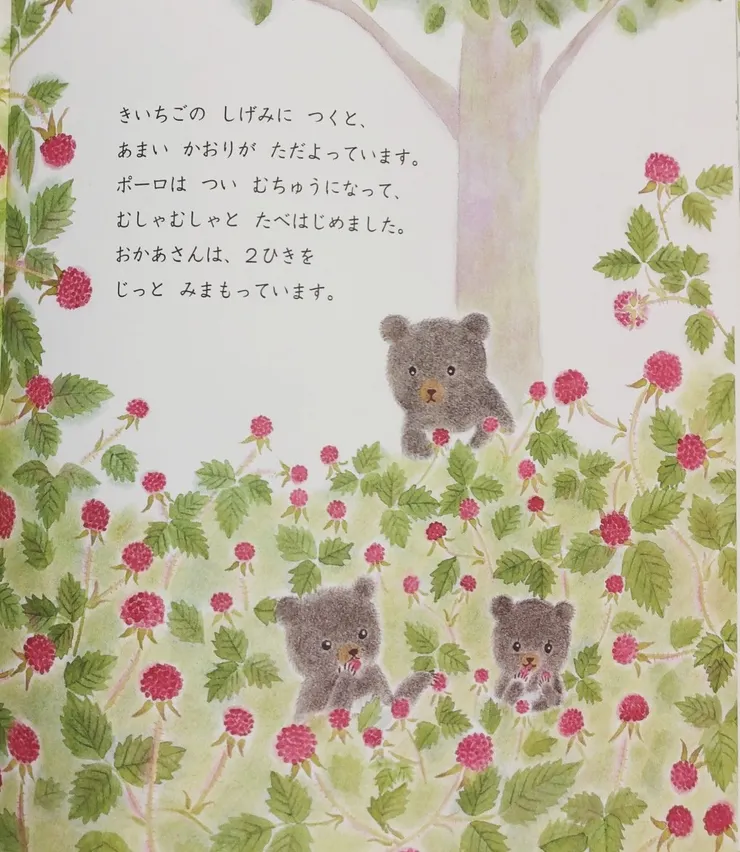 きいちごの　しげみに　つくと、
あまい　かおりが　ただよっています。
ポーロは　つい　むちゅうになって、
むしゃむしゃと　たべはじめました。
おかあさんは、２ひきを
じっと　みまもっています。